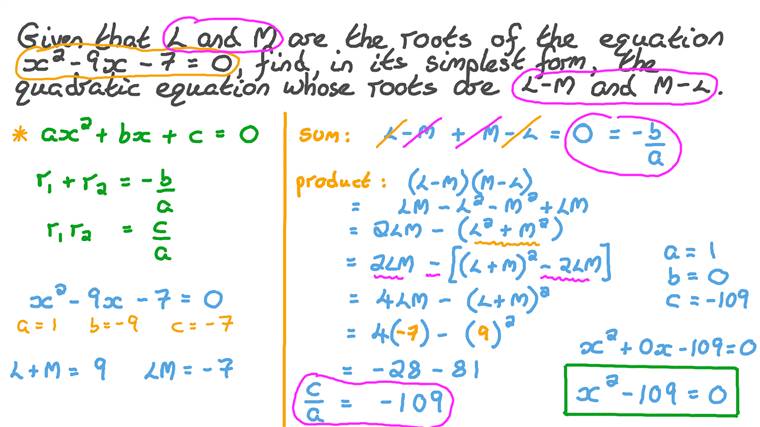 Given that L and M are the roots of the equation
x² - 9x - 7 = 0, find, in its simplest form, the
quadratic equation whose roots are L-M and M-L.
* ax² + bx + c = 0
r₁ + r₂ = -b/a
r₁r₂ = c/a
x² - 9x - 7 = 0
a = 1 b = -9 c = -7
L + M = 9 LM = -7
sum: L - M + M - L = 0 = -b/a
product: (L-M)(M-L)
= LM - L² - M² + LM
= 2LM - (L² + M²)
= 2LM - [(L+M)² - 2LM]
= 4LM - (L+M)²
= 4(-7) - (9)²
= -28 - 81
c/a = -109
a = 1
b = 0
c = -109
x² + 0x - 109 = 0
x² - 109 = 0